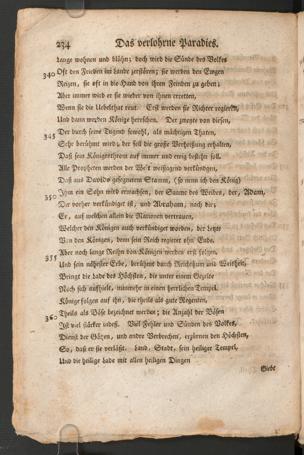 234 Das verlohrne Paradies.
Lange wohnen und blühn; doch wird die Sünde des Volkes
340 Oft den Frieden im Lande zerstören; sie werden den Ewgen
Reizen, sie oft in die Hand von ihren Feinden zu geben;
Aber immer wird er sie wieder von ihnen erretten,
Wenn sie die Uebelthat reut. Erst werden sie Richter regieren,
Und dann werden Könige herrschen. Der zweyte von diesen,
345 Der durch seine Tugend sowohl, als mächtigen Thaten,
Sehr berühmt wird; der soll die große Verheissung erhalten,
Daß sein Königesthron auf immer und ewig bestehn soll.
Alle Propheten werden der Welt weissagend verkündgen,
Daß aus Davids gesegnetem Stamm, (so nenn ich den König)
350 Ihm ein Sohn wird erwachsen, der Saame des Weibes, der, Adam,
Dir vorher verkündiget ist, und Abraham, nach dir;
Er, auf welchen allein die Nationen vertrauen,
Welcher den Königen auch verkündiget worden, der letzte
Von den Königen, denn sein Reich regieret ohn' Ende.
355 Aber noch lange Reihen von Königen werden erst folgen,
Und sein nähester Erbe, berühmt durch Reichthum und Weisheit,
Bringt die Lade des Höchsten, die unter einem Gezelte
Noch sich aufhielt, nunmehr in einen herrlichen Tempel.
Könige folgen auf ihn, die theils als gute Regenten,
360 Theils als Böse bezeichnet werden; die Anzahl der Bösen
Ist viel stärker indeß. Viel Fehler und Sünden des Volkes,
Dienst der Götzen, und andre Verbrechen, erzürnen den Höchsten,
So, daß er sie verläßt. Land, Stadt, sein heiliger Tempel,
Und die heilige Lade mit allen heiligen Dingen
Giebt